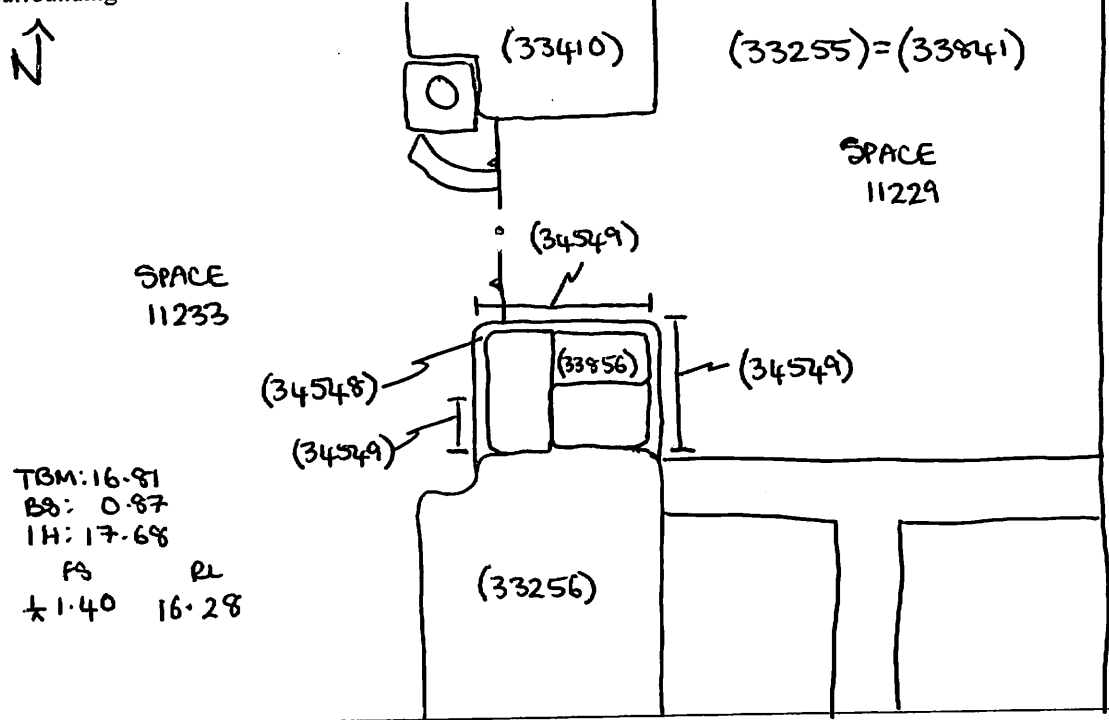 N
(33410)
(33255)=(33841)
SPACE
11229
(34549)
SPACE
11233
(33856)
(34549)
(34548)
(34549)
TBM: 16.81
BS: 0.87
IH: 17.68
FS RL
1.40 16.28
(33256)